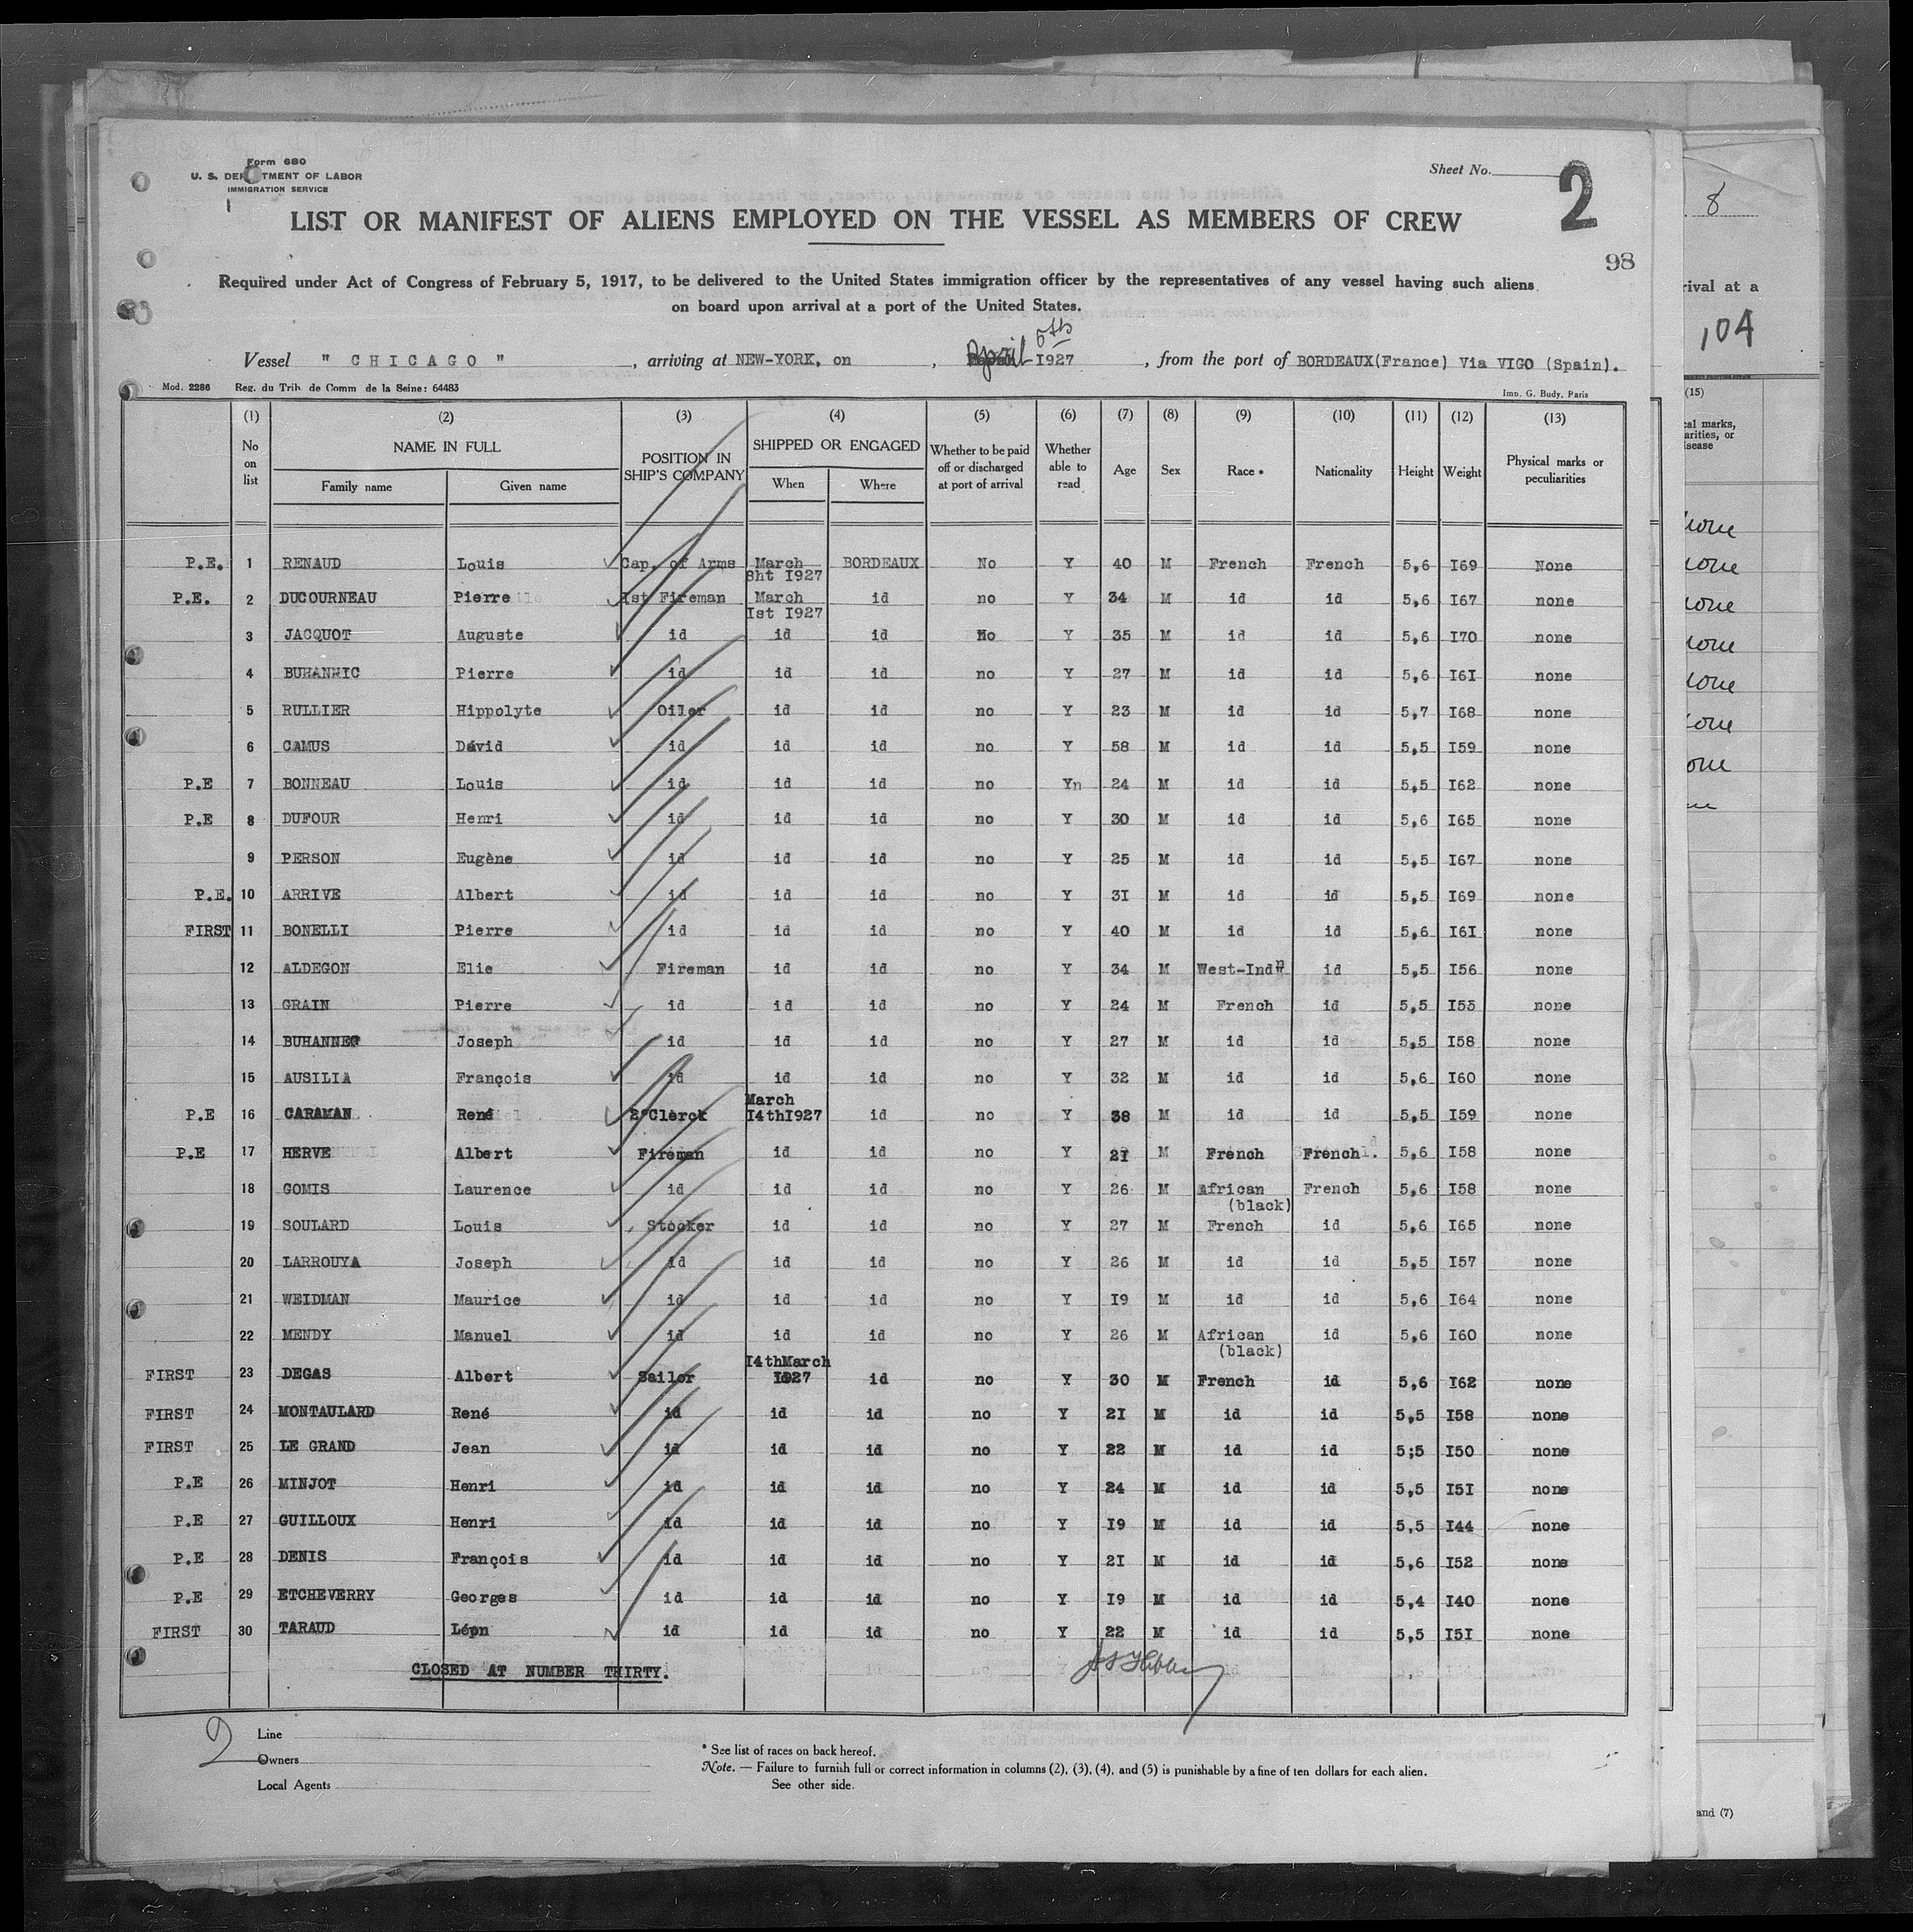 Form 680
U. S. DEPARTMENT OF LABOR
IMMIGRATION SERVICE
Sheet No. 2
LIST OR MANIFEST OF ALIENS EMPLOYED ON THE VESSEL AS MEMBERS OF CREW
98
8
Required under Act of Congress of February 5, 1917, to be delivered to the United States immigration officer by the representatives of any vessel having such aliens
on board upon arrival at a port of the United States.
rival at a
104
Vessel " CHICAGO ", arriving at NEW-YORK, on , April 6th I927 , from the port of BORDEAUX(France) Via VIGO (Spain).
Mod. 2286 Reg. du Trib. de Comm de la Seine: 64483 Imp. G. Budy, Paris
(1) (2) (3) (4) (5) (6) (7) (8) (9) (10) (11) (12) (13)
No on list NAME IN FULL Family name Given name POSITION IN SHIP'S COMPANY SHIPPED OR ENGAGED When Where Whether to be paid off or discharged at port of arrival Whether able to read Age Sex Race * Nationality Height Weight Physical marks or peculiarities
P.E. 1 RENAUD Louis Cap. of Arms March 8ht I927 BORDEAUX No Y 40 M French French 5,6 I69 None
P.E. 2 DUCOURNEAU Pierre 1st Fireman March Ist I927 id no Y 34 M id id 5,6 I67 none
3 JACQUOT Auguste id id id No Y 35 M id id 5,6 I70 none
4 BUHANNIC Pierre id id id no Y 27 M id id 5,6 I6I none
5 RULLIER Hippolyte Oiler id id no Y 23 M id id 5,7 I68 none
6 CAMUS David id id id no Y 58 M id id 5,5 I59 none
P.E 7 BONNEAU Louis id id id no Yn 24 M id id 5,5 I62 none
P.E 8 DUFOUR Henri id id id no Y 30 M id id 5,6 I65 none
9 PERSON Eugène id id id no Y 25 M id id 5,5 I67 none
P.E. 10 ARRIVE Albert id id id no Y 3I M id id 5,5 I69 none
FIRST 11 BONELLI Pierre id id id no Y 40 M id id 5,6 I6I none
12 ALDEGON Elie Fireman id id no Y 34 M West-Indn id 5,5 I56 none
13 GRAIN Pierre id id id no Y 24 M French id 5,5 I55 none
14 BUHANNEC Joseph id id id no Y 27 M id id 5,5 I58 none
15 AUSILIA François id id id no Y 32 M id id 5,6 I60 none
P.E 16 CARAMAN René 2°Clerck March I4thI927 id no Y 38 M id id 5,5 I59 none
P.E 17 HERVE Albert Fireman id id no Y 2I M French French 5,6 I58 none
18 GOMIS Laurence id id id no Y 26 M African (black) French 5,6 I58 none
19 SOULARD Louis Stocker id id no Y 27 M French id 5,6 I65 none
20 LARROUYA Joseph id id id no Y 26 M id id 5,5 I57 none
21 WEIDMAN Maurice id id id no Y I9 M id id 5,6 I64 none
22 MENDY Manuel id id id no Y 26 M African (black) id 5,6 I60 none
FIRST 23 DEGAS Albert Sailor I4thMarch I927 id no Y 30 M French id 5,6 I62 none
FIRST 24 MONTAULARD René id id id no Y 2I M id id 5,5 I58 none
FIRST 25 LE GRAND Jean id id id no Y 22 M id id 5;5 I50 none
P.E 26 MINJOT Henri id id id no Y 24 M id id 5,5 I5I none
P.E 27 GUILLOUX Henri id id id no Y I9 M id id 5,5 I44 none
P.E 28 DENIS François id id id no Y 2I M id id 5,6 I52 none
P.E 29 ETCHEVERRY Georges id id id no Y I9 M id id 5,4 I40 none
FIRST 30 TARAUD Léon id id id no Y 22 M id id 5,5 I5I none
CLOSED AT NUMBER THIRTY.
2
Line
Owners
Local Agents
* See list of races on back hereof.
Note. — Failure to furnish full or correct information in columns (2), (3), (4), and (5) is punishable by a fine of ten dollars for each alien.
See other side.
(15)
cal marks,
arities, or
isease
none
none
none
none
none
none
and (7)